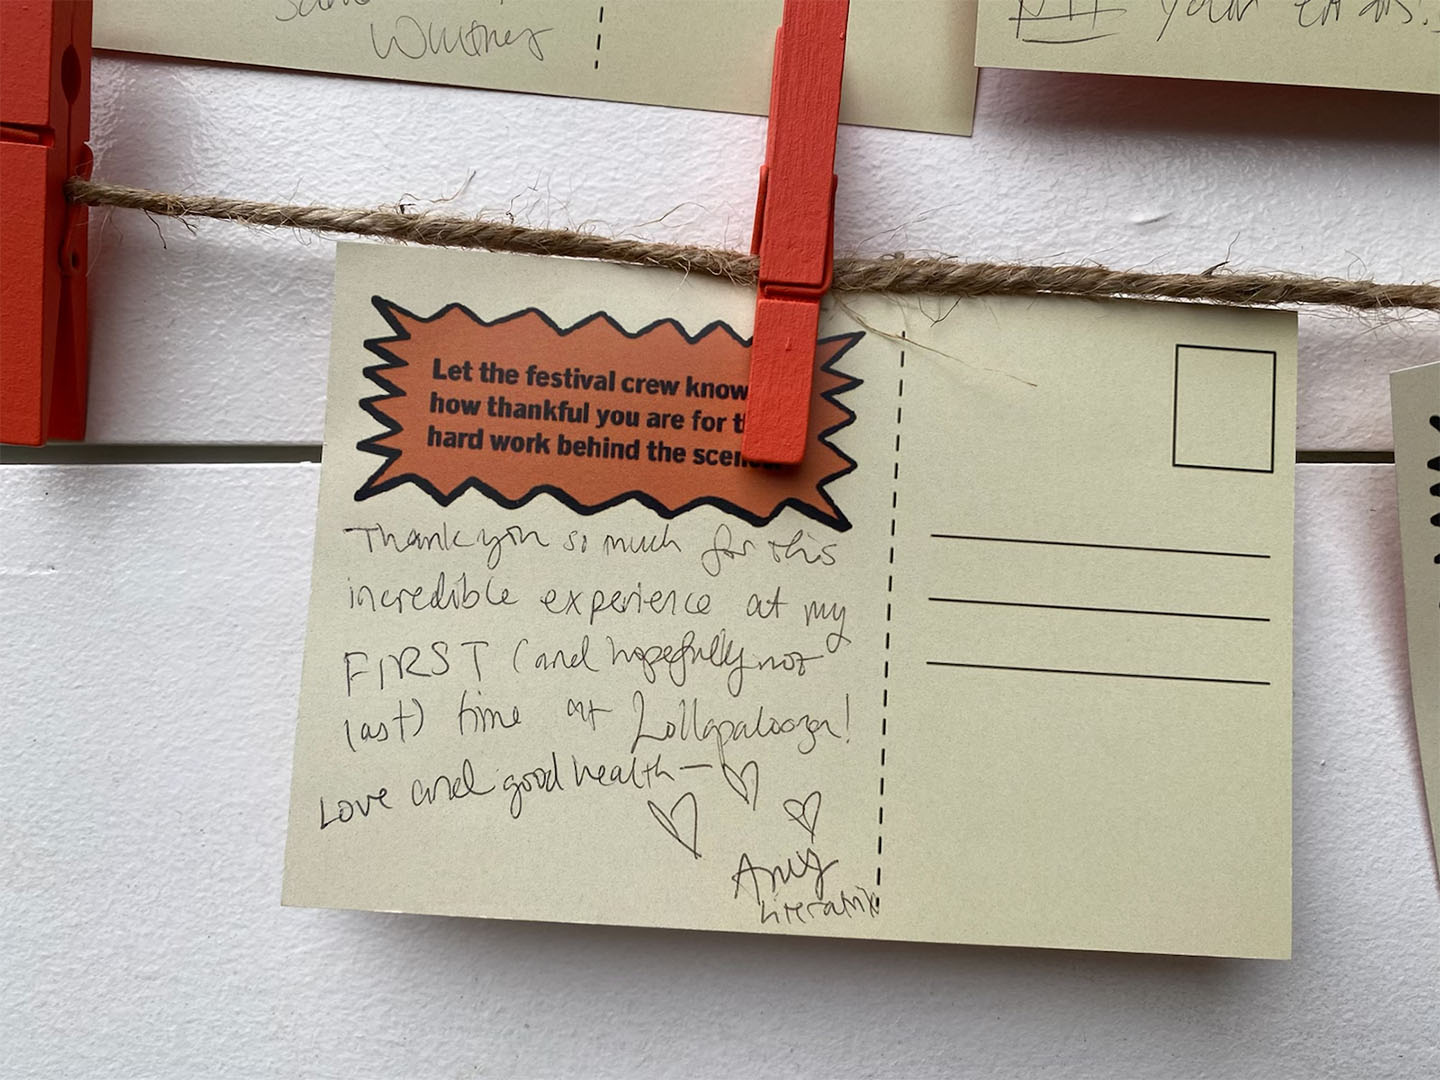 Whitney
your
Let the festival crew know
how thankful you are for t
hard work behind the scen
Thank you so much for this
incredible experience at my
FIRST (and hopefully not
last) time at Lollapalooza!
Love and good health —
Amy